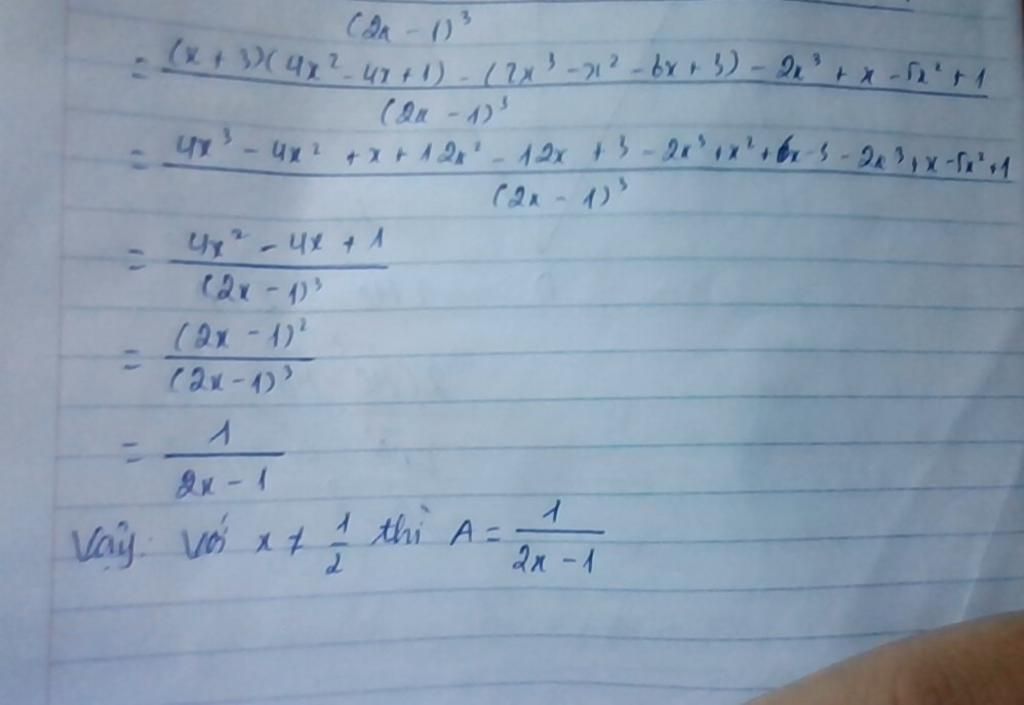 (2x - 1)³
= \frac{(x + 3)(4x² - 4x + 1) - (2x³ - x² - 6x + 3) - 2x³ + x - 5x² + 1}{(2x - 1)³}
= \frac{4x³ - 4x² + x + 12x² - 12x + 3 - 2x³ + x² + 6x - 3 - 2x³ + x - 5x² + 1}{(2x - 1)³}
= \frac{4x² - 4x + 1}{(2x - 1)³}
= \frac{(2x - 1)²}{(2x - 1)³}
= \frac{1}{2x - 1}
Vậy: Với x ≠ \frac{1}{2} thì A = \frac{1}{2x - 1}